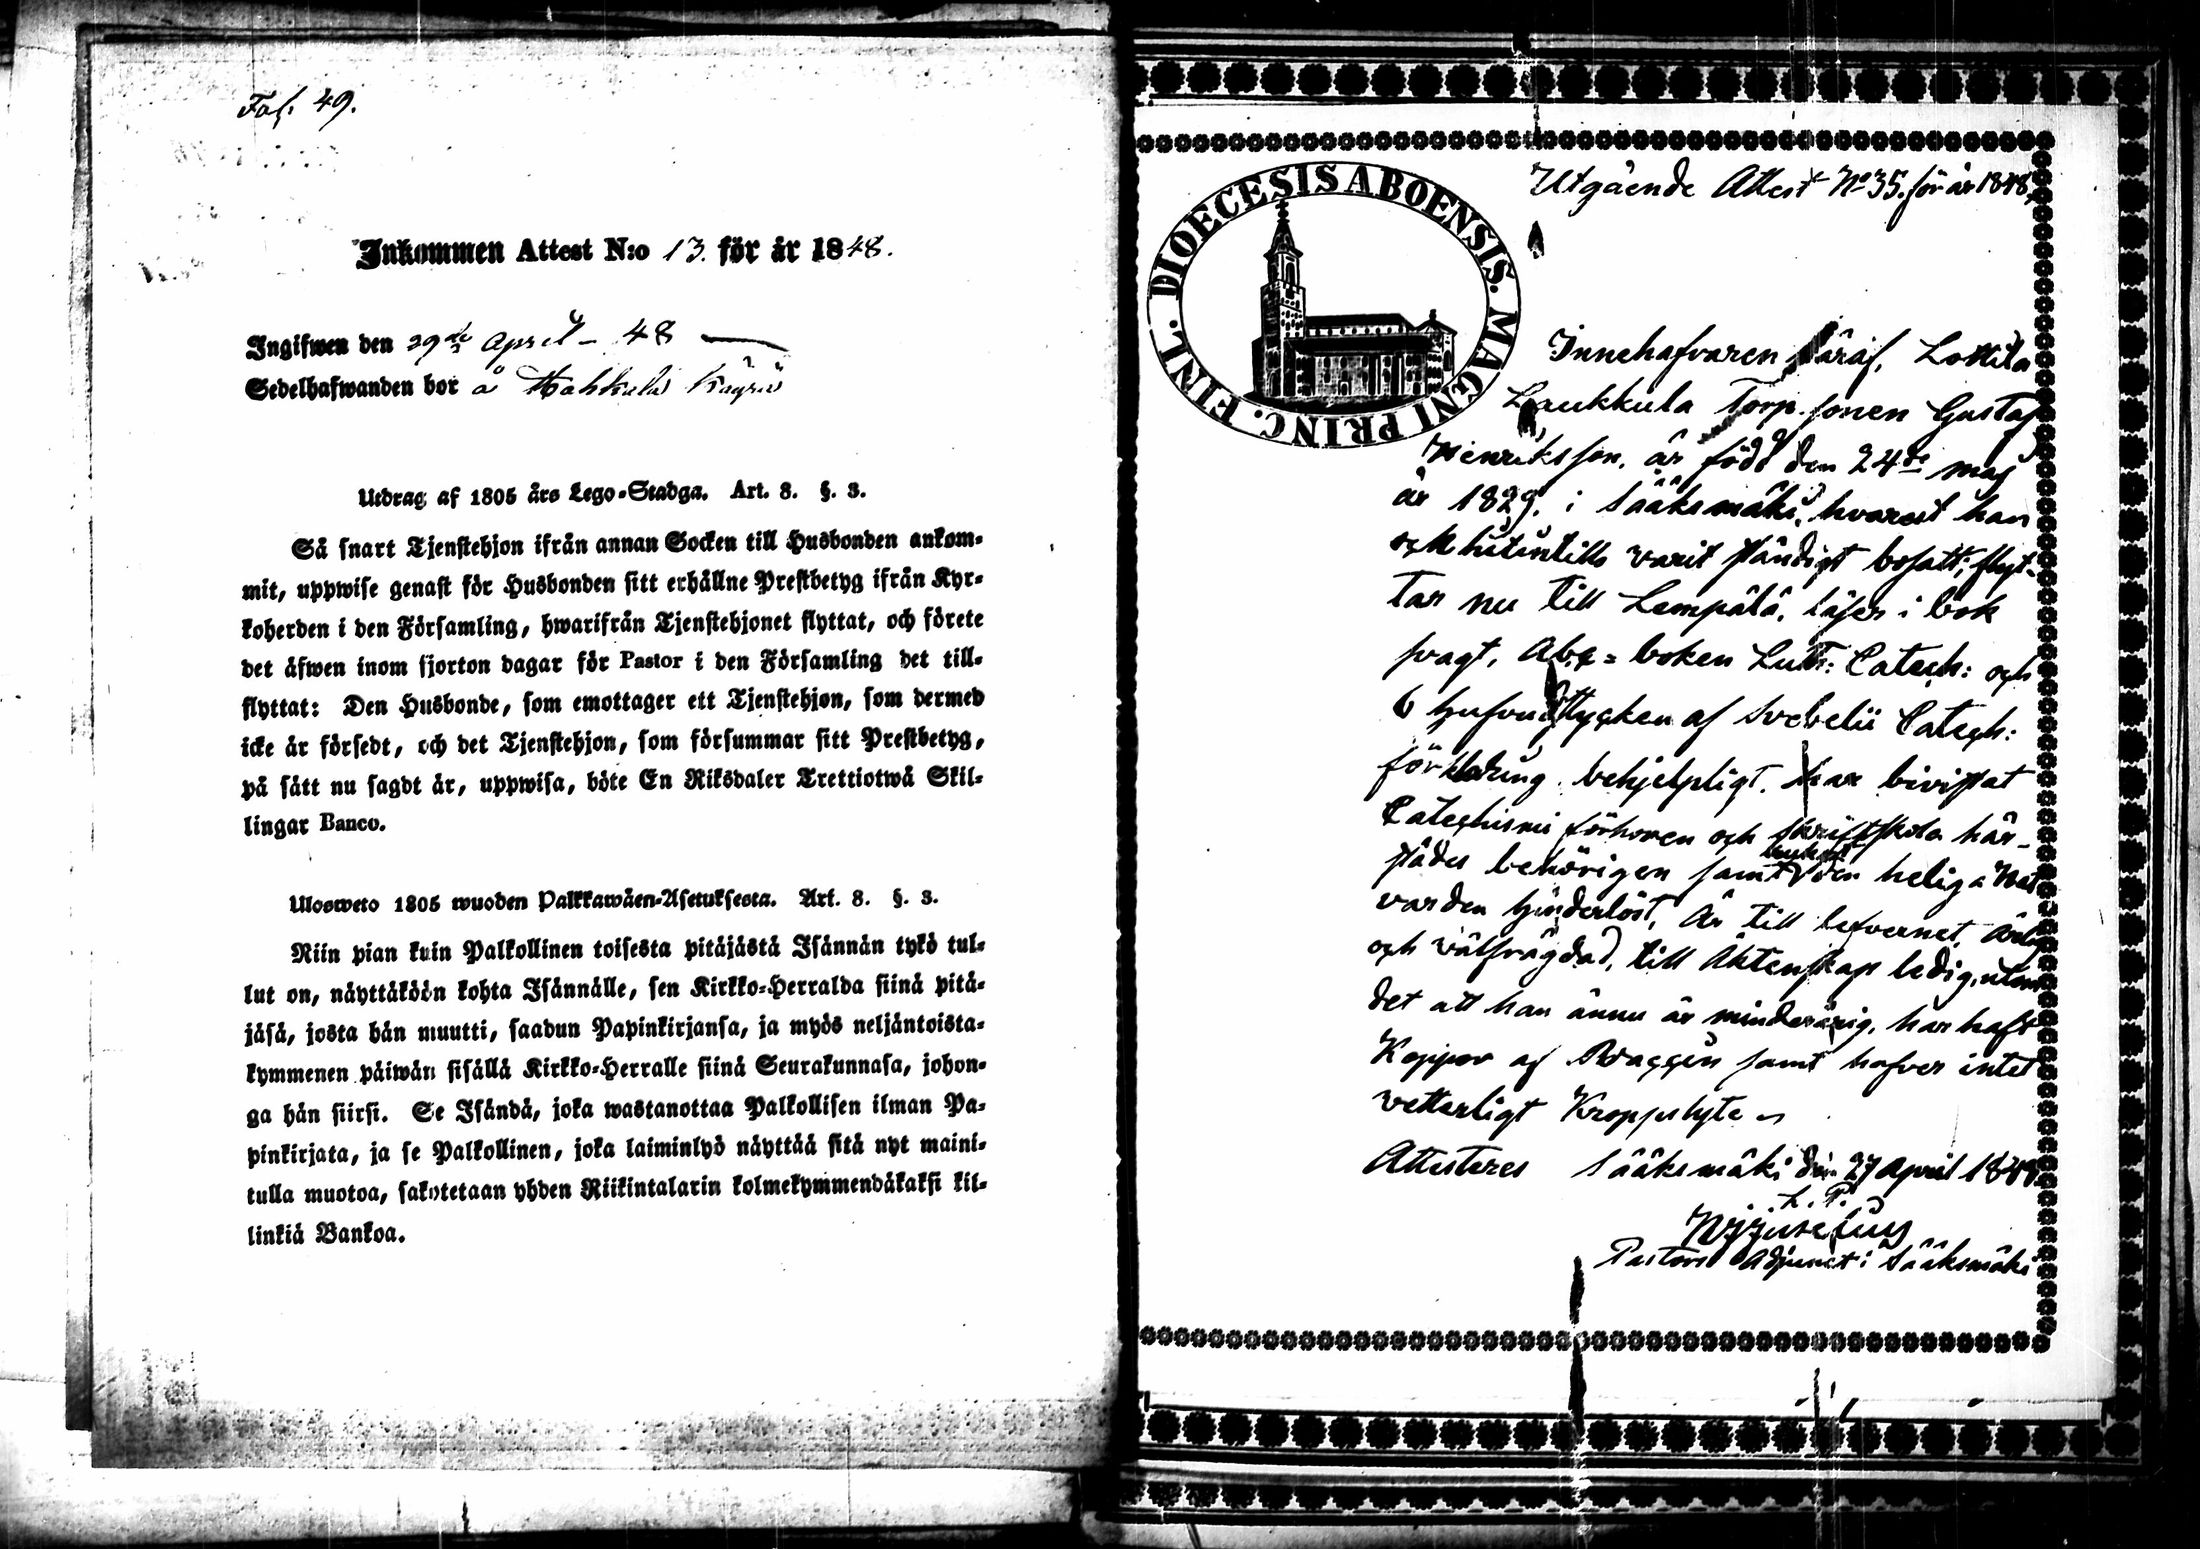 Fol. 49.
Inkommen Attest N:o 13. för år 1848.
Ingifwen den 29de April - 48
Sedelhafwanden bor å Mahkula
Utdrag af 1805 års Lego-Stadga. Art. 8. §. 3.
Så snart Tjenstehjon ifrån annan Socken till Husbonden ankom-
mit, uppwise genast för Husbonden sitt erhållne Prestbetyg ifrån Kyr-
koherden i den Församling, hwarifrån Tjenstehjonet flyttat, och förete
det äfwen inom fjorton dagar för Pastor i den Församling det till-
flyttat: Den Husbonde, som emottager ett Tjenstehjon, som dermed
icke är försedt, och det Tjenstehjon, som försummar sitt Prestbetyg,
på sätt nu sagdt är, uppwisa, böte En Riksdaler Trettiotwå Skil-
lingar Banco.
Ulosweto 1805 wuoden Palkkawäen-Asetuksesta. Art. 8. §. 3.
Niin pian kuin Palkollinen toisesta pitäjästä Isännän tykö tul-
lut on, näyttäköön kohta Isännälle, sen Kirkko-Herralda siinä pitä-
jäsä, josta hän muutti, saadun Papinkirjansa, ja myös neljäntoista-
kymmenen päiwän sisällä Kirkko-Herralle siinä Seurakunnasa, johon-
ga hän siirsi. Se Isändä, joka wastanottaa Palkollisen ilman Pa-
pinkirjata, ja se Palkollinen, joka laiminlyö näyttää sitä nyt maini-
tulla muotoa, sakotetaan yhden Riikintalarin kolmekymmendäkaksi kil-
linkiä Bankoa.
DIOECESIS ABOENSIS. MAGNI PRINC. FINL.
Utgående Attest No 35. för år 1848
Innehafvaren häraf, Lottila
Laukkula Torp.sonen Gustaf
Henriksson, är född den 24de maj
år 1829, i Sääksmäki, hvarest han
och hitintills varit ständigt bosatt; flyt-
tar nu till Lempälä, läser i bok
svagt, Abc=boken Luth: Catech: och
6 hufvudstycken af Svebelii Catech:
förklaring behjelpligt, har bivistat
Catechismi förhören och Skriftskola här-
städes behörigen samt den heliga Natt
varden hinderlöst, Är till lefvernet ärlig
och välfrägdad, till Äktenskap ledig, utom
det att han ännu är minderårig, har haft
Koppor af Vaccin samt hafver intet
vetterligt Kroppslyte
Attesteres Sääksmäki den 27 April 1848
L. P.
Pastors Adjunct i Sääksmäki